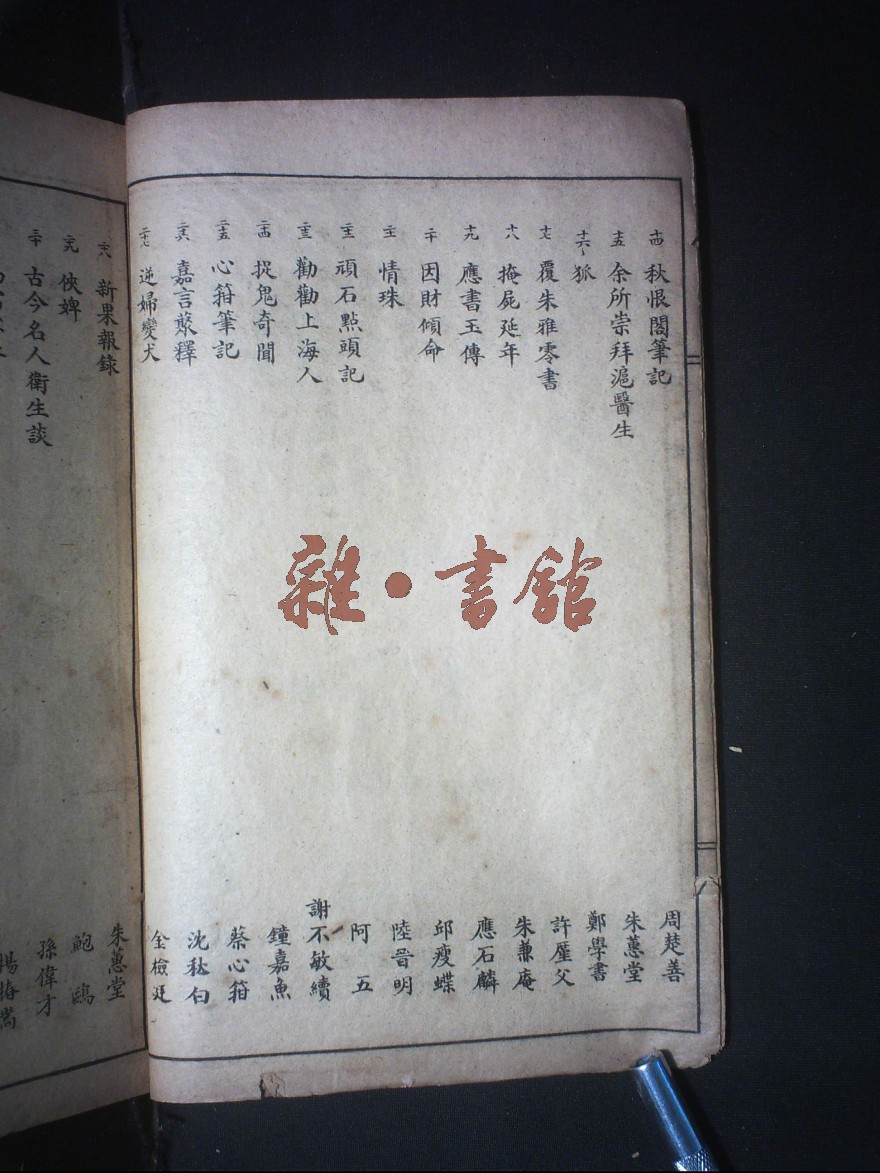 十四 秋恨閣筆記 周楚善
十五 余所崇拜滬醫生 朱蕙堂
十六 狐 鄭學書
十七 覆朱雅零書 許廑父
十八 掩屍延年 朱兼庵
十九 應書玉傳 應石麟
二十 因財傾命 邱瘦蝶
二十一 情珠 陸晉明
二十二 頑石點頭記 阿五
二十三 勸勸上海人 謝不敏續
二十四 捉鬼奇聞 鐘嘉魚
二十五 心箝筆記 蔡心箝
二十六 嘉言叢釋 沈秋白
二十七 逆婦變犬 金檢廷
二十八 新果報錄 朱蕙堂
二十九 俠婢 鮑鷗
三十 古今名人衛生談 孫偉才
雜·書館